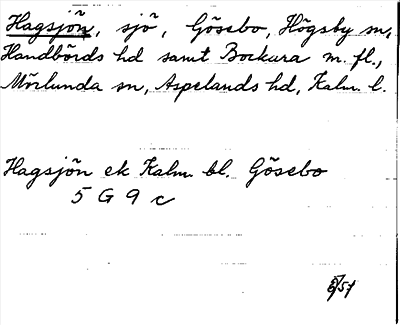 Hagsjön, sjö, Gösebo, Högsby sn,
Handbörds hd samt Bockara m. fl.,
Mörlunda sn, Aspelands hd, Kalm. l.
Hagsjön ek Kalm. bl. Gösebo
5 G 9 c